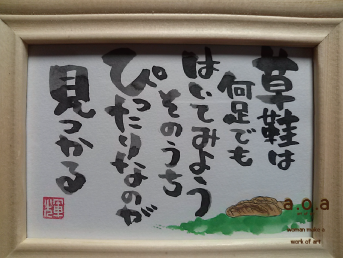 草鞋は
何足でも
はいてみよう
そのうち
ぴったりなのが
見つかる
輝
a.o.a
woman make a
work of art